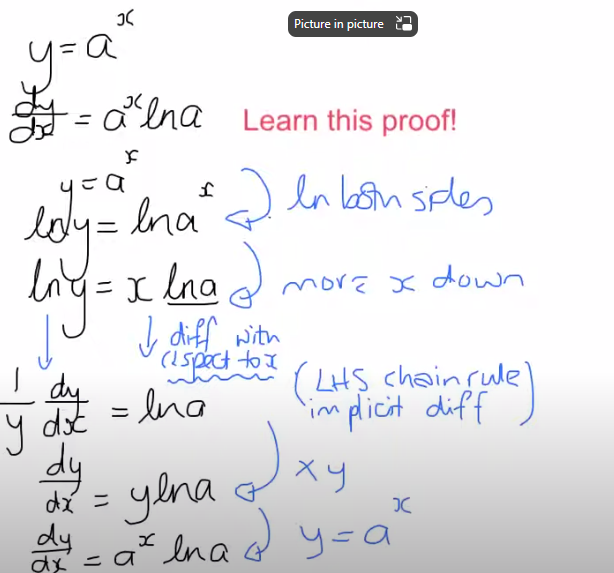 Picture in picture
y = a^x
dy/dx = a^x ln a Learn this proof!
y = a^x
ln y = ln a^x ln both sides
ln y = x ln a move x down
diff with
respect to x
1/y dy/dx = ln a (LHS chain rule
implicit diff)
dy/dx = y ln a × y
dy/dx = a^x ln a y = a^x